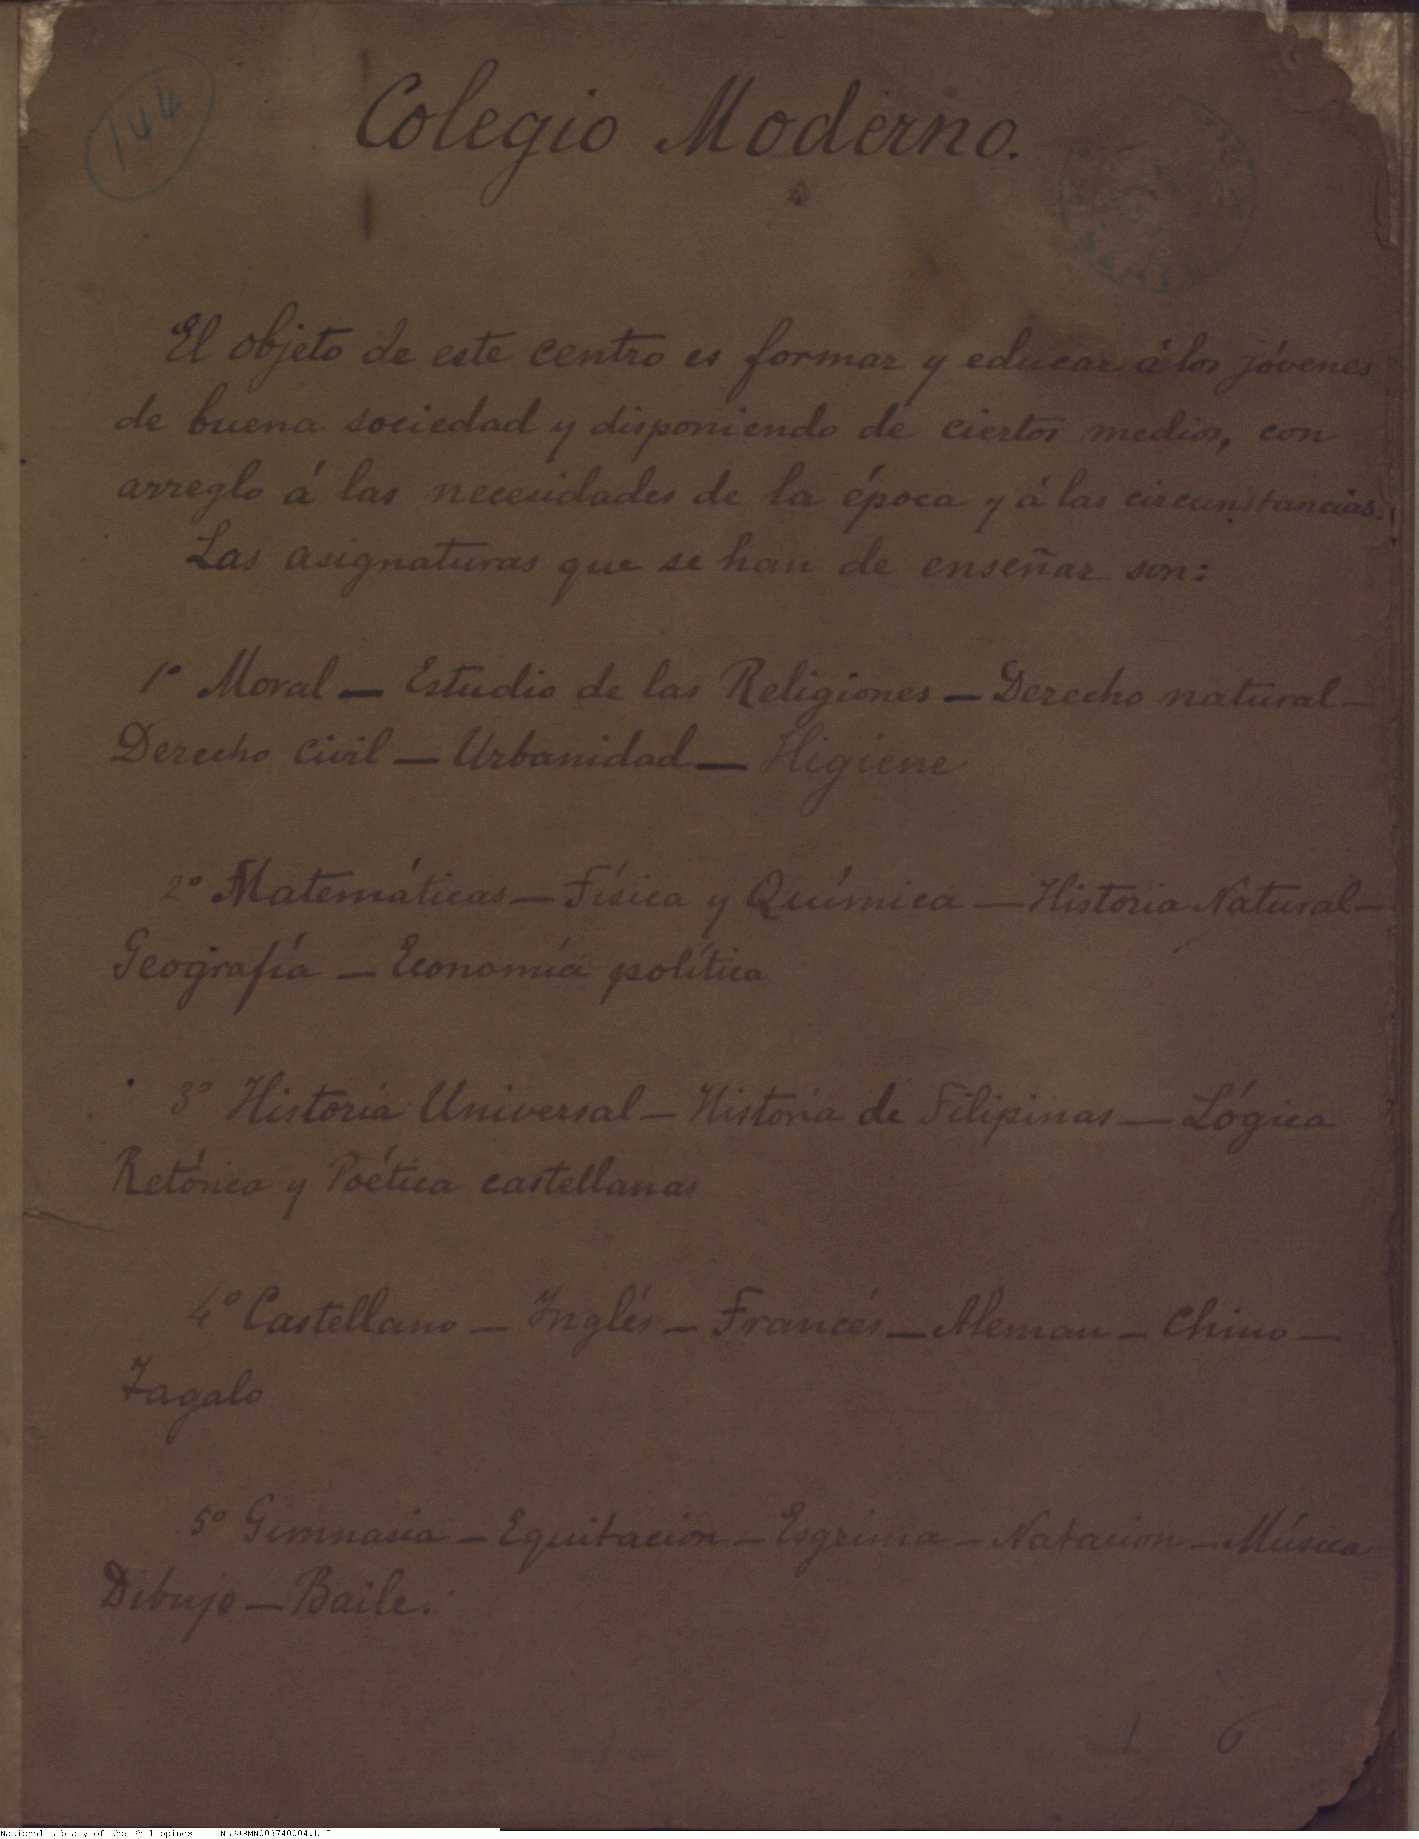 144
Colegio Moderno.
El objeto de este centro es formar y educar á los jóvenes
de buena sociedad y disponiendo de ciertos medios, con
arreglo á las necesidades de la época y á las circunstancias.
Las asignaturas que se han de enseñar son:
1º Moral — Estudio de las Religiones — Derecho natural —
Derecho civil — Urbanidad — Higiene
2º Matemáticas — Física y Química — Historia Natural —
Geografía — Economía política
3º Historia Universal — Historia de Filipinas — Lógica
Retórica y Poética castellanas
4º Castellano — Inglés — Francés — Aleman — Chino —
Tagalo
5º Gimnasia — Equitacion — Esgrima — Natacion — Música
Dibujo — Baile.
6
National Library of the Philippines